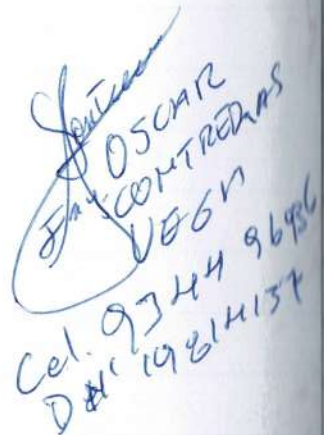 OSCAR
Ing. CONTRERAS
VEGA
Cel. 9344 96936
DNI 19814137